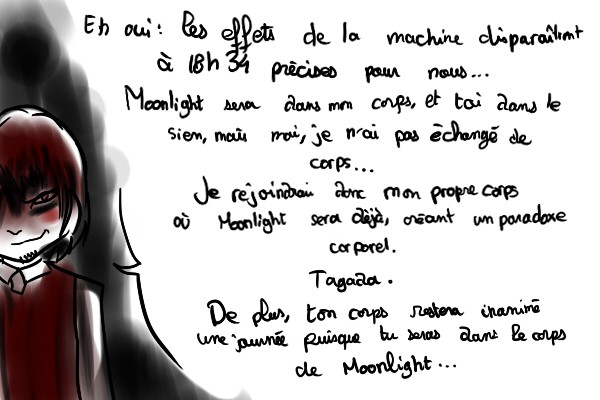 Eh oui : les effets de la machine disparaîtront
à 18h 34 précises pour nous...
Moonlight sera dans mon corps, et toi dans le
sien, mais moi, je n'ai pas échangé de
corps...
Je rejoindrai donc mon propre corps
où Moonlight sera déjà, créant un paradoxe
corporel.
Tagada.
De plus, ton corps restera inanimé
une journée puisque tu seras dans le corps
de Moonlight...